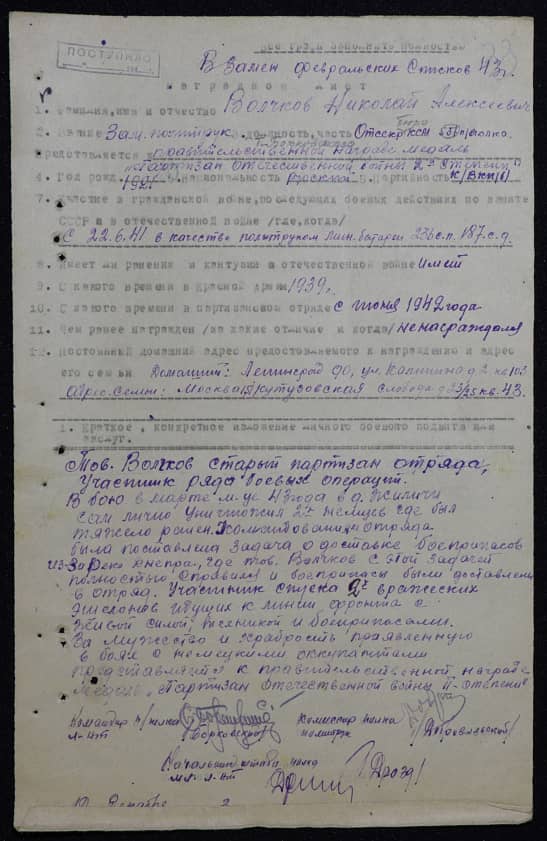 ПОСТУПИЛО
Взамен февральских Списков 43г.
НАГРАДНОЙ ЛИСТ
1. Фамилия, имя и отчество Волчков Николай Алексеевич
2. Звание Зам. политрук. должность, часть Отсекр бюро КСМ полка.
представляется к правительственной награде медаль
"Партизан Отечественной войны 2й степени"
4. Год рожд. 1921 5. Национальность Русский 6. Партийность К/ВКП(б)
7. Участие в гражданской войне, последующих боевых действиях по защите
СССР и в отечественной войне /где, когда/
С 22.6.41 в качестве политруком батареи 236 с.п. 187 с.д.
8. Имеет ли ранения и контузии в отечественной войне имеет
9. С какого времени в Красной армии 1939г.
10. С какого времени в партизанском отряде с июня 1942 года
11. Чем ранее награжден /за какие отличие и когда/ ненаграждался
12. Постоянный домашний адрес предоставляемого к награждению и адрес
его семьи Домашний: Ленинград 90, ул. Калинина д 2 кв 103
Адрес. семьи: Москва Кутузовская слобода д 23/25 кв. 43.
1. Краткое, конкретное изложение личного боевого подвига или
заслуг.
Тов. Волчков старый партизан отряда,
Участник ряда боевых операций.
В бою в марте м-це 43 года в д. Жиличи
сам лично уничтожил 2х немцев где был
тяжело ранен. Командованием отряда
была поставлена задача о доставке боеприпасов
из-за реки Днепра, где тов. Волчков с этой задачей
полностью справился и боеприпасы были доставлены
в отряд. Участник спуска 2х вражеских
эшелонов идущих к линии фронта с
живой силой, техникой и боеприпасами.
За мужество и храбрость проявленную
в боях с немецкими оккупантами
представляется к правительственной награде
Медаль "Партизан Отечественной войны II-степени
Командир п/полка Комиссар полка
л-нт /Борковский/ политрук
Начальник штаба полка
мл. л-нт /Дрозд/